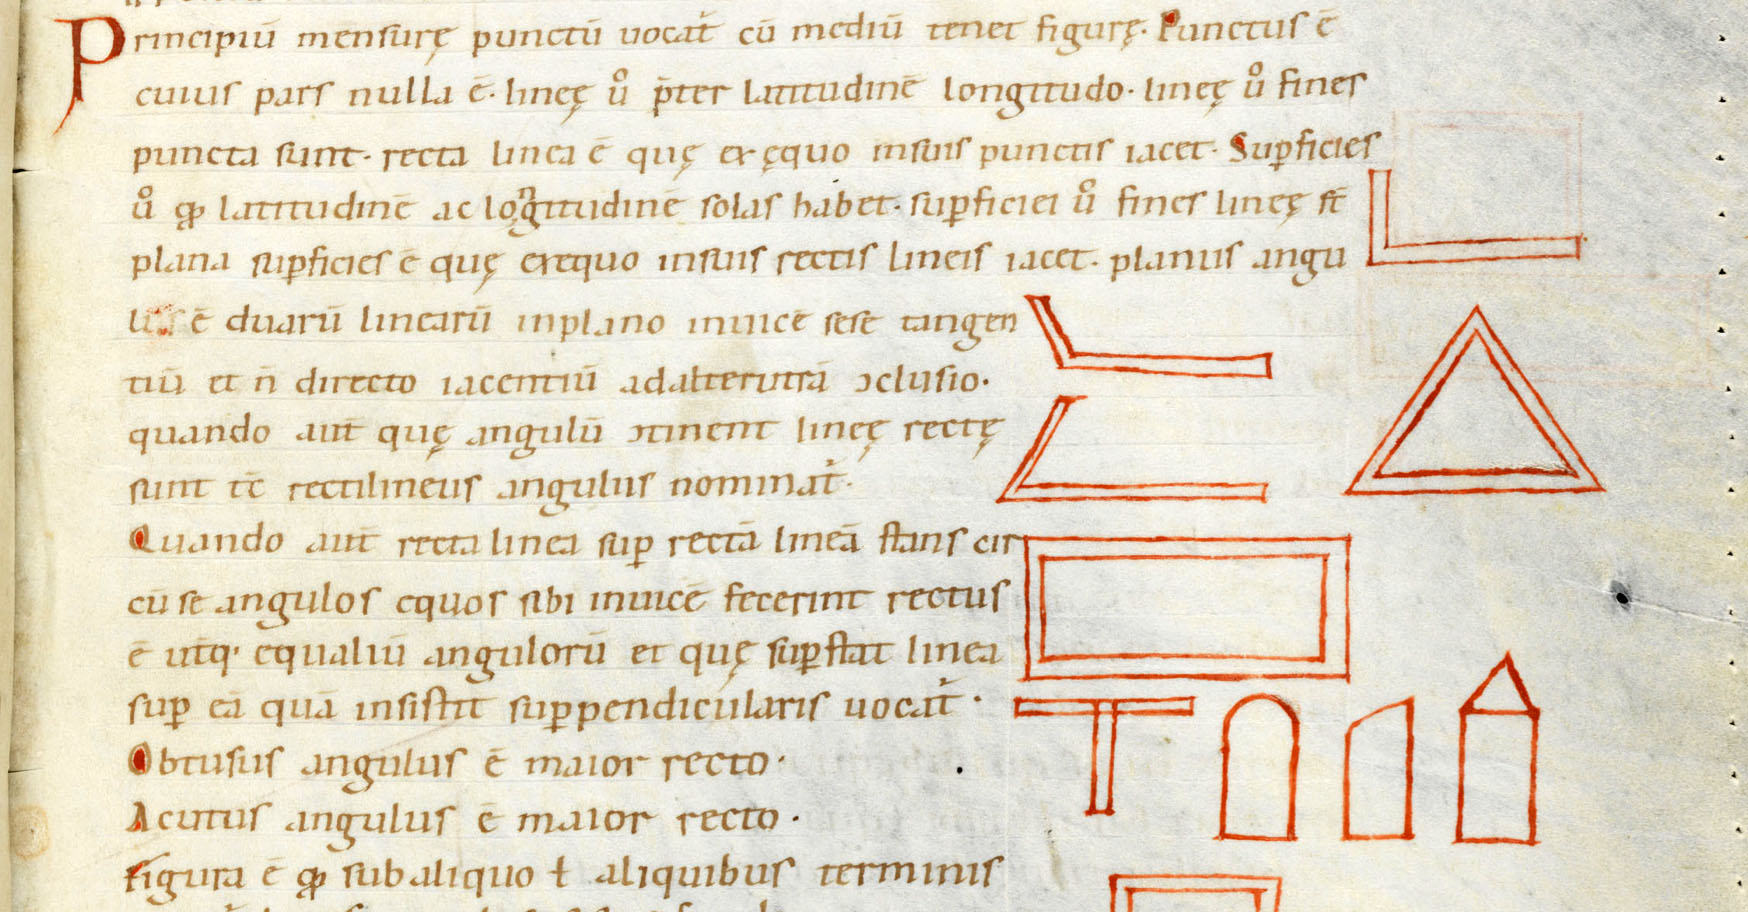 Principiū mensurę punctū uocat̄ cū mediū tenet figurę. Punctus ē
cuius pars nulla ē. lineę ů p̄ter latitudinē longitudo. lineę ů fines
puncta sunt. recta linea ē quę ex ęquo insuis punctis iacet. Suꝑficies
ů ꝙ latitudinē ac longitudinē solas habet. suꝑficiei ů fines lineę st̄
plana suꝑficies ē quę exequo insuis rectis lineis iacet. planus angu
lus ē duarū linearū inplano inuicē sese tangen
tiū et n̄ directo iacentiū adalterutrā ɔclusio.
quando aut̄ quę angulū ɔtinent lineę rectę
sunt tc̄ rectilineus angulus nominat̄.
Quando aut̄ recta linea suꝑ rectā lineā stans cir
cū se angulos equos sibi inuicē fecerint rectus
ē ut̄q. equaliū angulorū et quę suꝑstat linea
suꝑ eā quā insistit suꝑpendicularis uocat̄.
Obtusus angulus ē maior recto.
Acutus angulus ē maior recto.
Figura ē ꝙ subaliquo ł aliquibus terminis